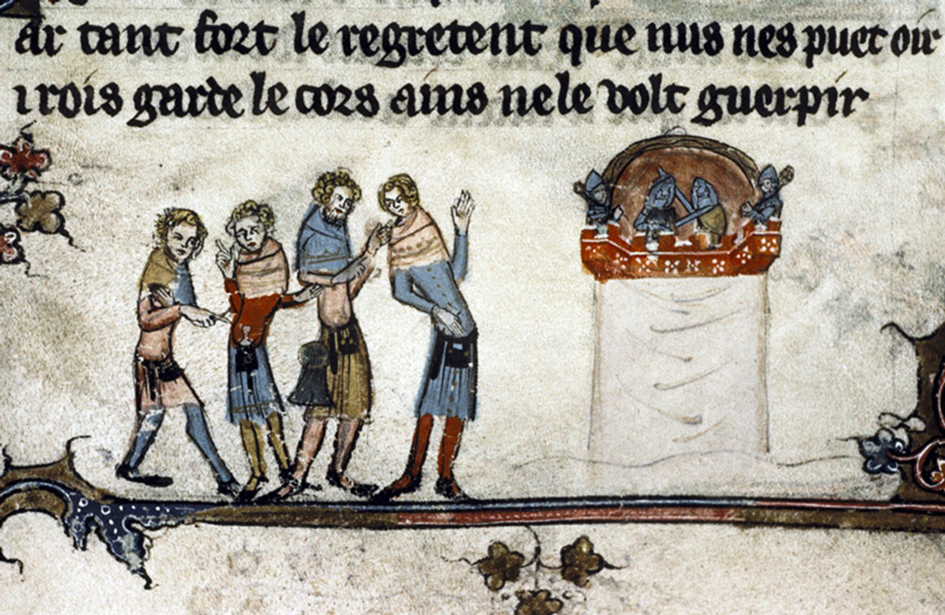 ar tant fort le regretent que nus nes puet oir
i rois garde le cors ains ne le volt guerpir